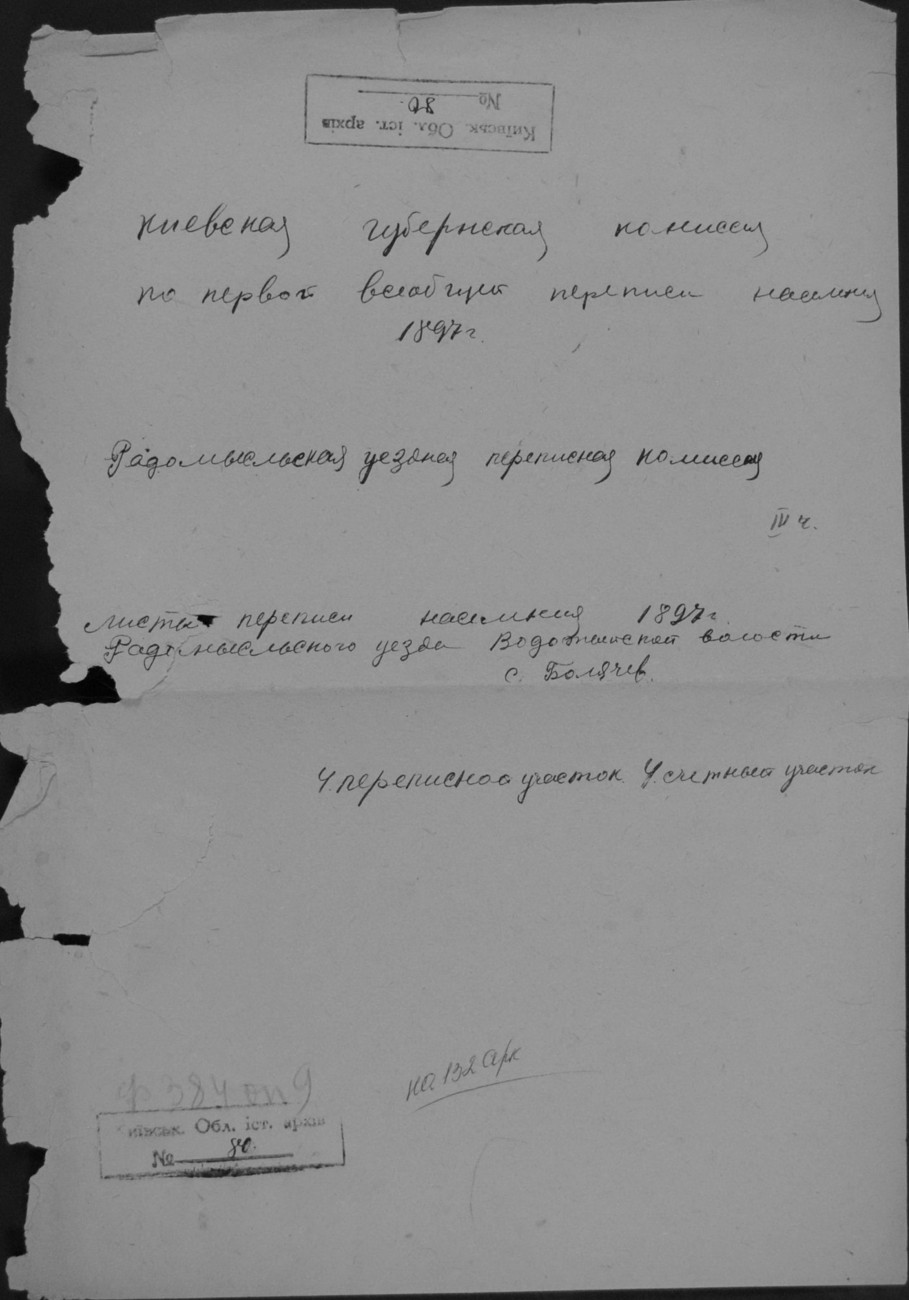 Київськ. Обл. іст. архів
№ 80.
Киевская губернская комиссия
по первой всеобщей переписи населения
1897 г.
Радомысльская уездная переписная комиссия
IV ч.
Листы переписи населения 1897 г.
Радомысльского уезда Водотыйской волости
с. Болячев.
4. переписноо участок. 4. счетный участок
на 132 арк
Ф. 384 оп 9
иївськ. Обл. іст. архів
№ 80.